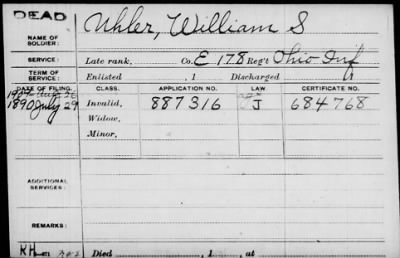 DEAD
NAME OF SOLDIER: Uhler, William S
SERVICE: Late rank, Co. E 178 Reg't Ohio Inf
TERM OF SERVICE: Enlisted , 1 Discharged , 1
DATE OF FILING. CLASS. APPLICATION NO. LAW. CERTIFICATE NO.
1890 July 29 Invalid, 887316 J 684768
Widow,
Minor,
ADDITIONAL SERVICES:
REMARKS:
RH
Died , 1 , at